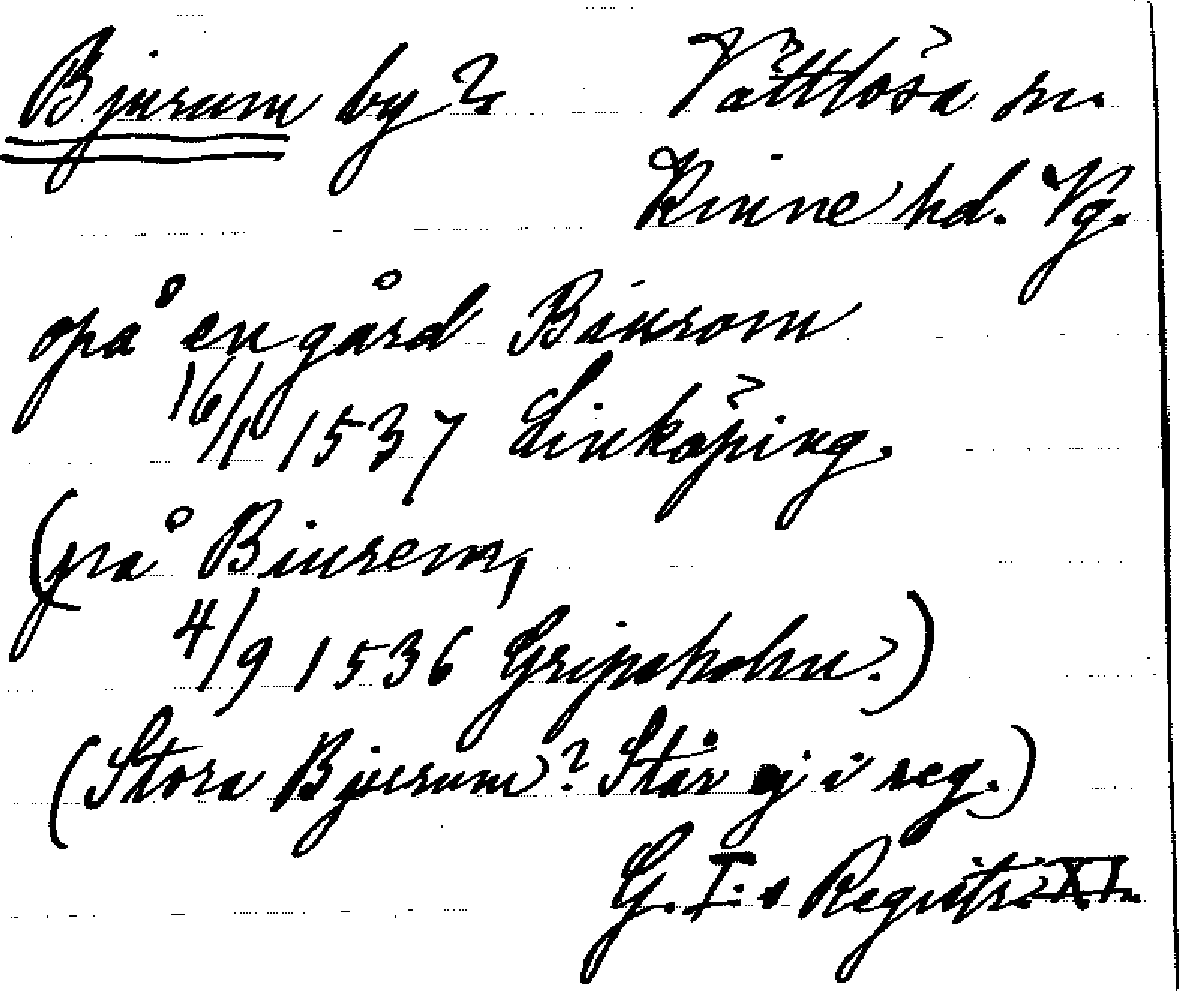 Bjurum by? Vättlösa sn.
Kinne hd. Vg.
opå en gård Biurom
16/1 1537 Linköping.
(på Biurem,
4/9 1536 Gripsholm.)
(Stora Bjurum? Står ej i reg.)
G. I:s Registr. XI.